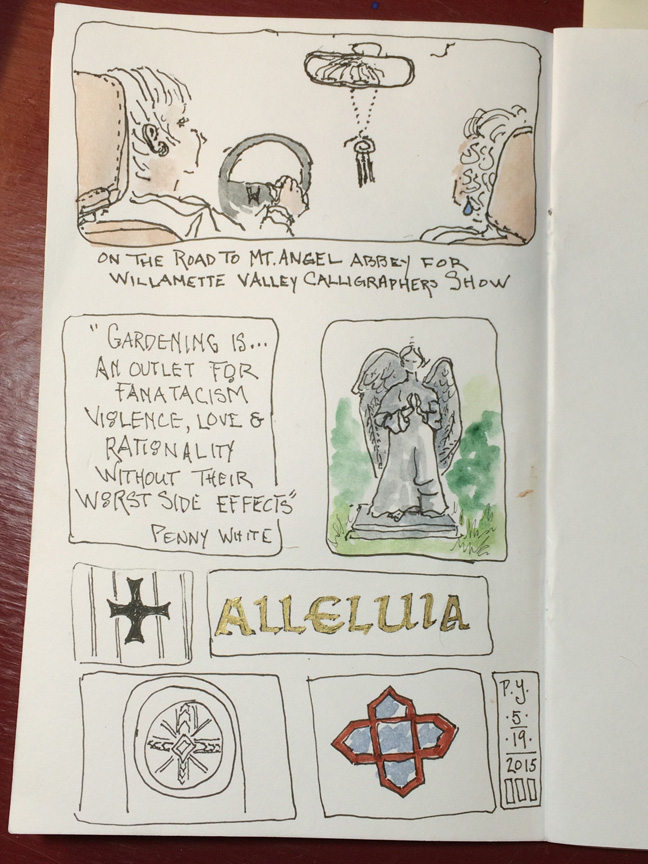 W
ON THE ROAD TO MT. ANGEL ABBEY FOR
WILLAMETTE VALLEY CALLIGRAPHERS SHOW
"GARDENING IS...
AN OUTLET FOR
FANATACISM
VIOLENCE, LOVE &
RATIONALITY
WITHOUT THEIR
WORST SIDE EFFECTS"
PENNY WHITE
ALLELUIA
P.Y.
·5·
·19·
2015